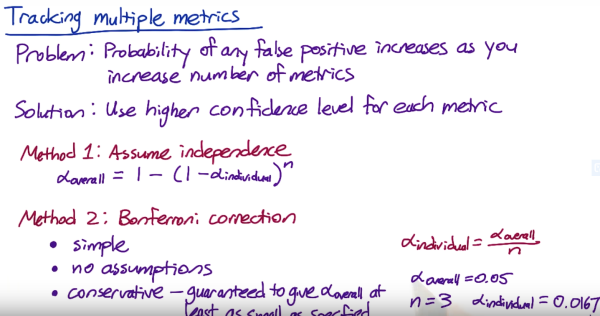 Tracking multiple metrics
Problem: Probability of any false positive increases as you
increase number of metrics
Solution: Use higher confidence level for each metric
Method 1: Assume independence
αoverall = 1 - (1 - αindividual)^n
Method 2: Bonferroni correction
• simple
• no assumptions
• conservative - guaranteed to give αoverall at
least as small as specified
αindividual = αoverall / n
αoverall = 0.05
n = 3 αindividual = 0.0167